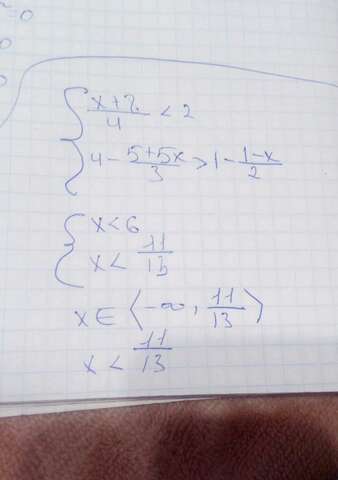 0
0
0
{ (x+2)/4 < 2
4 - (5+5x)/3 > 1 - (1-x)/2
{ x < 6
x < 11/13
x ∈ ⟨-∞, 11/13⟩
x < 11/13